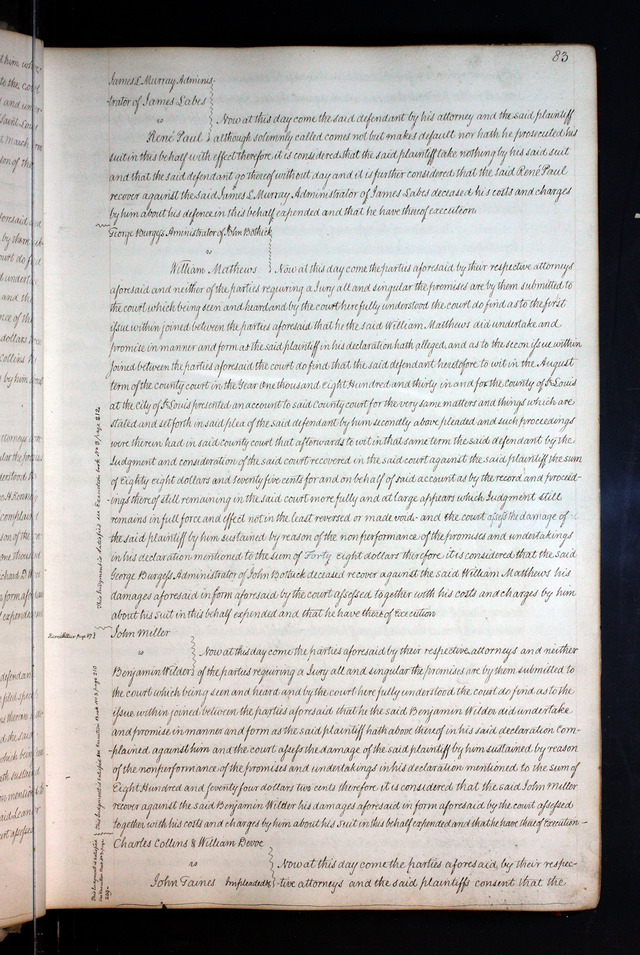 83
James L Murray Adminis
trator of James Labes
vs Now at this day come the said defendant by his attorney and the said plaintiff
René Paul although solemnly called comes not but makes default nor hath he prosecuted his
suit in this behalf with effect therefore it is considered that the said plaintiff take nothing by his said suit
and that the said defendant go thereof without day and it is further considered that the said René Paul
recover against the said James L Murray Administrator of James Labes deceased his costs and charges
by him about his defence in this behalf expended and that he have thereof execution.
George Burgess Aministrator of John Bottuck
vs
William Matthews Now at this day come the parties aforesaid by their respective attorneys
aforesaid and neither of the parties requiring a Jury all and singular the premises are by them submitted to
the court which being seen and heard and by the court here fully understood the court do find as to the first
issue within joined between the parties aforesaid that he the said William Matthews did undertake and
promise in manner and form as the said plaintiff in his declaration hath alleged, and as to the second issue within
Joined between the parties aforesaid the court do find that the said defendant heretofore to wit in the August
term of the county court in the Year One thousand eight Hundred and thirty in and for the county of St Louis
at the city of St Louis presented an account to said County court for the very same matters and things which are
stated and set forth in said plea of the said defendant by him secondly above pleaded and such proceedings
were therein had in said county court that afterwards to wit in that same term the said defendant by the
Judgment and consideration of the said court recovered in the said court against the said plaintiff the sum
of Eighty eight dollars and seventy five cents for and on behalf of said account as by the record and proceed-
-ings thereof still remaining in the said court more fully and at large appears which Judgment still
remains in full force and effect not in the least reversed or made void - and the court assess the damage of
the said plaintiff by him sustained by reason of the non performance of the promises and undertakings
in his declaration mentioned to the sum of Forty eight dollars therefore it is considered that the said
George Burgess Administrator of John Bottuck deceased recover against the said William Matthews his
damages aforesaid in form aforesaid by the court assessed together with his costs and charges by him
about his suit in this behalf expended and that he have thereof Execution
This judgment is satisfied see Execution book No page 212
John Miller
vs Now at this day come the parties aforesaid by their respective attorneys and neither
Benjamin Wilder of the parties requiring a Jury all and singular the premises are by them submitted to
the court which being seen and heard and by the court here fully understood the court do find as to the
issue within joined between the parties aforesaid that he the said Benjamin Wilder did undertake
and promise in manner and form as the said plaintiff hath above thereof in his said declaration Com-
-plained against him and the court assess the damage of the said plaintiff by him sustained by reason
of the nonperformance of the promises and undertakings in his declaration mentioned to the sum of
Eight Hundred and seventy four dollars two cents therefore it is considered that the said John Miller
recover against the said Benjamin Wilder his damages aforesaid in form aforesaid by the court assessed
together with his costs and charges by him about his Suit in this behalf expended and that he have thereof Execution -
This judgment is satisfied see Execution Book page 210
Charles Collins & William Bevoe
vs Now at this day come the parties aforesaid by their respec-
John Taines Impleaded &c -tive attorneys and the said plaintiffs consent that the
This judgment is satisfied
see Execution Book page
209